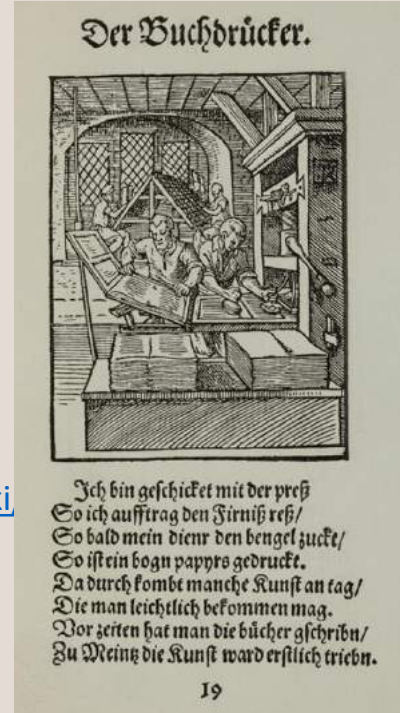 Der Buchdrücker.
Ich bin geschicket mit der preß
So ich aufftrag den Firniß reß/
So bald mein dienr den bengel zuckt/
So ist ein bogn papyrs gedruckt.
Da durch kombt manche Kunst an tag/
Die man leichtlich bekommen mag.
Vor zeiten hat man die bücher gschribn/
Zu Meintz die Kunst ward erstlich triebn.
19